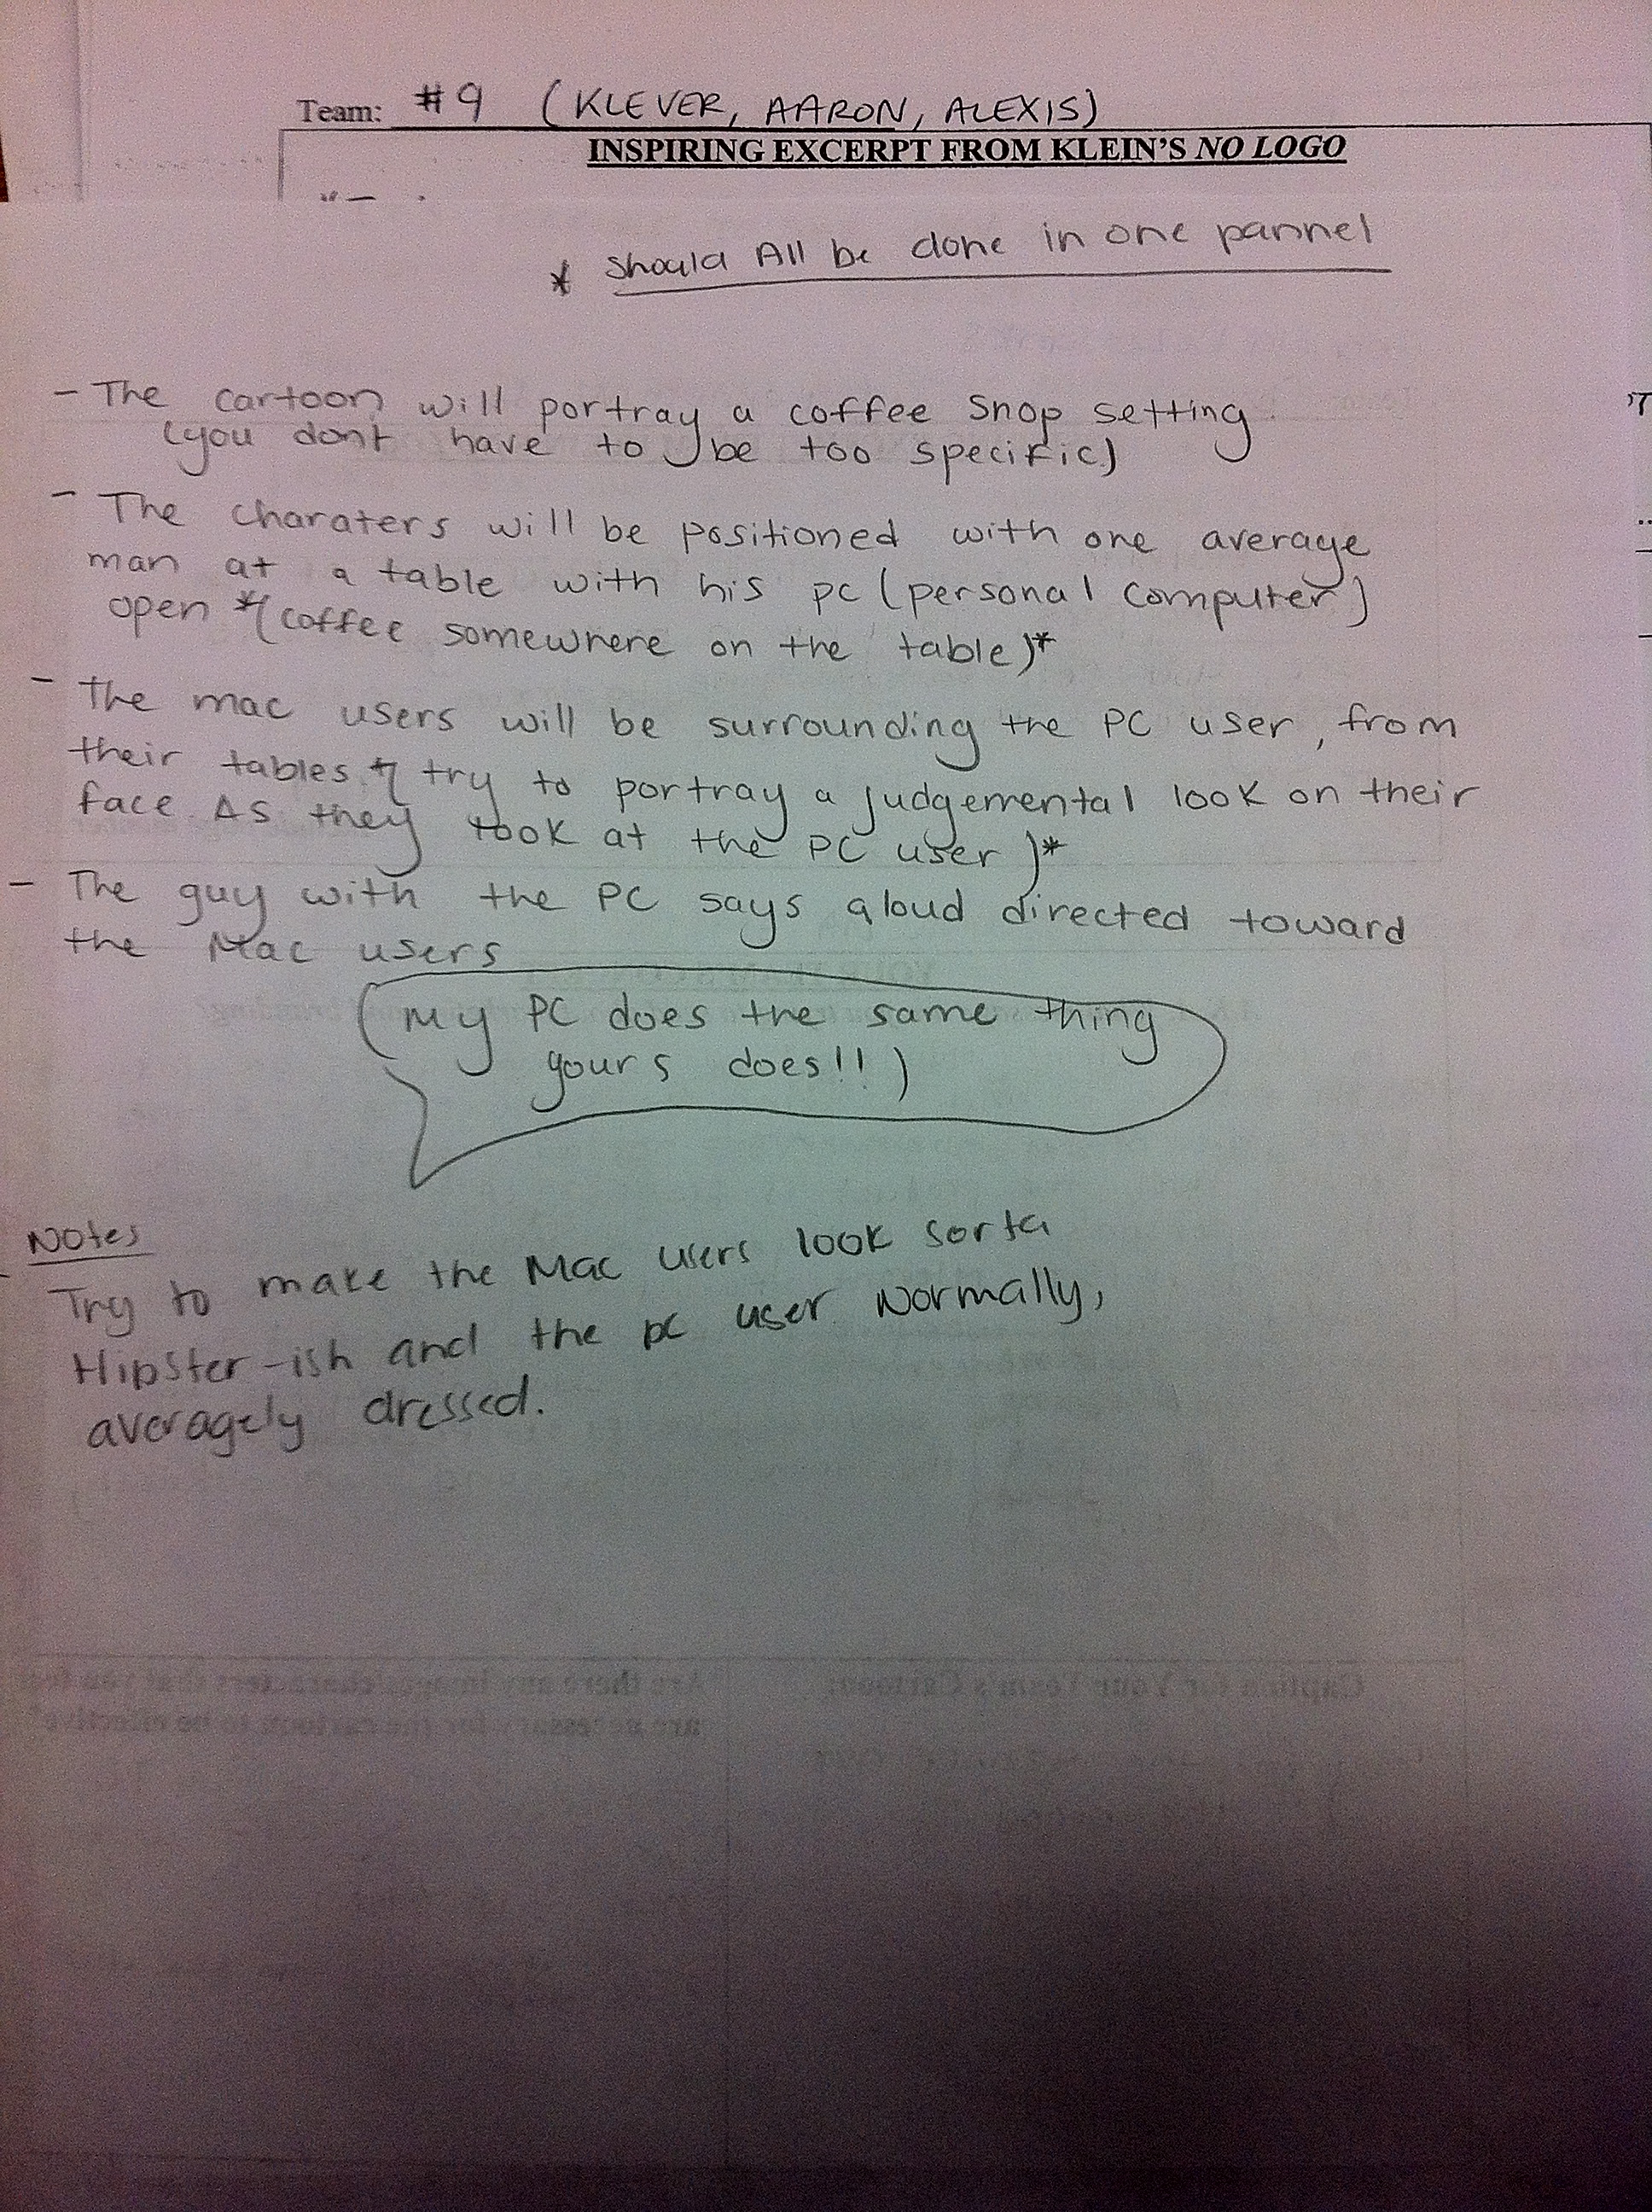 Team: #9 (KLEVER, AARON, ALEXIS)
INSPIRING EXCERPT FROM KLEIN'S NO LOGO
* Should All be done in one pannel
- The cartoon will portray a coffee shop setting
(you dont have to be too specific)
- The charaters will be positioned with one average
man at a table with his pc (personal computer)
open *(coffee somewhere on the table)*
- The mac users will be surrounding the PC user, from
their tables *( try to portray a judgemental look on their
face As they look at the PC user )*
- The guy with the PC says aloud directed toward
the Mac users
(My PC does the same thing
yours does!!)
Notes
- Try to make the Mac users look sorta
Hipster-ish and the pc user Normally,
averagely dressed.
Are there any images/characters that you
are necessary for the cartoon to be effective
Caption for Your Team's Cartoon: